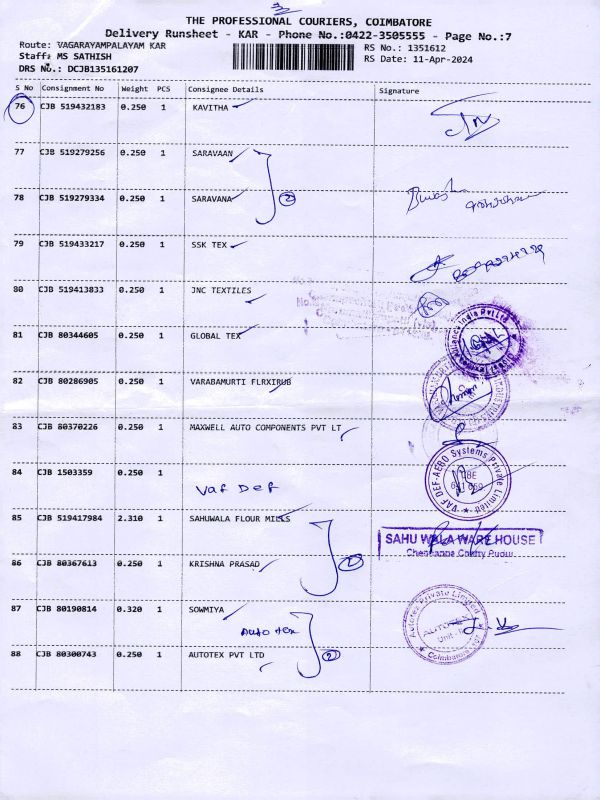 3
THE PROFESSIONAL COURIERS, COIMBATORE
Delivery Runsheet - KAR - Phone No.:0422-3505555 - Page No.:7
Route: VAGARAYAMPALAYAM KAR
RS No.: 1351612
Staff: MS SATHISH
RS Date: 11-Apr-2024
DRS No.: DCJB135161207
S No Consignment No Weight PCS Consignee Details Signature
76 CJB 519432183 0.250 1 KAVITHA
77 CJB 519279256 0.250 1 SARAVAAN
78 CJB 519279334 0.250 1 SARAVANA 2
79 CJB 519433217 0.250 1 SSK TEX
80 CJB 519413833 0.250 1 JNC TEXTILES
81 CJB 80344605 0.250 1 GLOBAL TEX
82 CJB 80286905 0.250 1 VARABAMURTI FLRXIRUB
83 CJB 80370226 0.250 1 MAXWELL AUTO COMPONENTS PVT LT
VAF DEF-AERO Systems Private Limited
84 CJB 1503359 0.250 1
Vaf Def
85 CJB 519417984 2.310 1 SAHUWALA FLOUR MILLS
SAHU WALA WARE HOUSE
86 CJB 80367613 0.250 1 KRISHNA PRASAD 2
87 CJB 80190814 0.320 1 SOWMIYA
Auto tex
Autotex Private Limited
AUTOTEX
Unit-II
Coimbatore
88 CJB 80300743 0.250 1 AUTOTEX PVT LTD 2